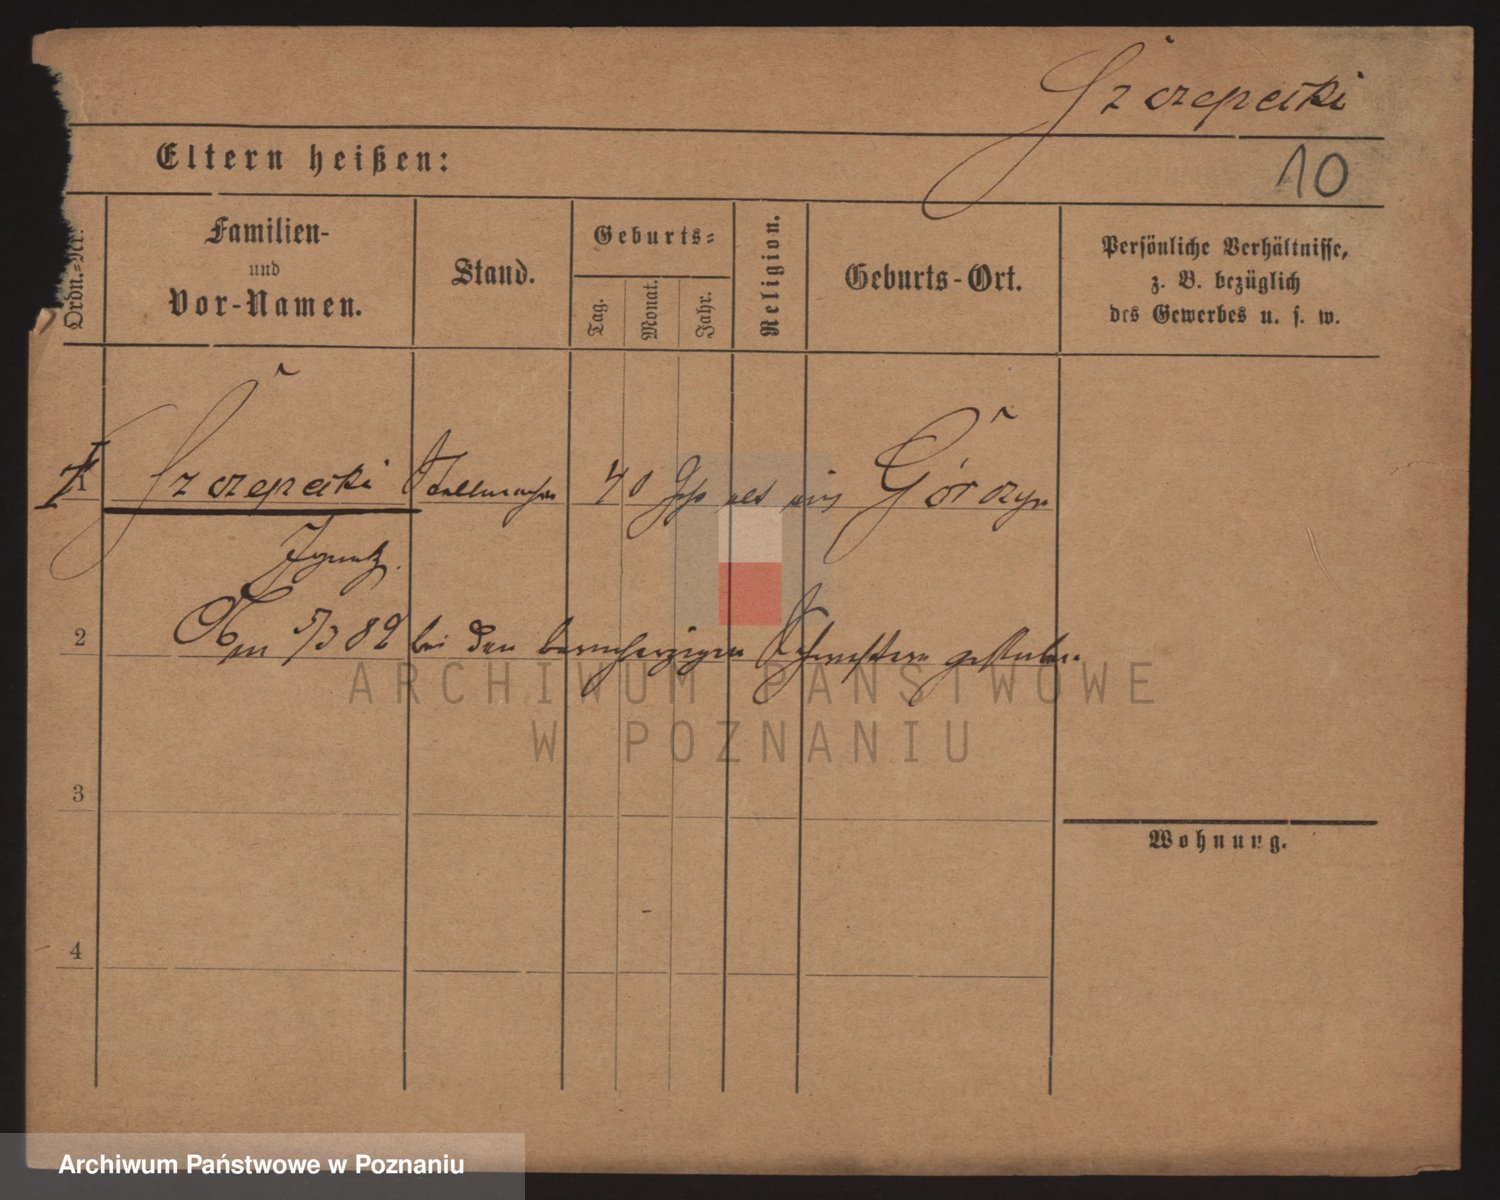 Szczepecki
Eltern heißen:
10
Ordn.=Nr.
Familien-
und
Vor-Namen.
Stand.
Geburts=
Tag.
Monat.
Jahr.
Religion.
Geburts-Ort.
Persönliche Verhältnisse,
z. B. bezüglich
des Gewerbes u. s. w.
1 Szczepecki Stellmacher 40 alt aus Górczyn
Ignatz.
2
Am 5/3 82 bei den barmherzigen Schwestern gestorben.
ARCHIWUM PAŃSTWOWE
W POZNANIU
3
Wohnung.
4
Archiwum Państwowe w Poznaniu